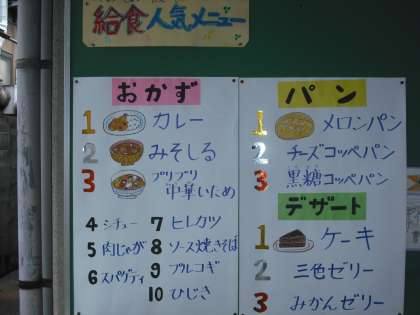 給食人気メニュー
おかず
1 カレー
2 みそしる
3 プリプリ中華いため
4 シチュー
5 肉じゃが
6 スパゲティ
7 ヒレカツ
8 ソース焼きそば
9 プルコギ
10 ひじき
パン
1 メロンパン
2 チーズコッペパン
3 黒糖コッペパン
デザート
1 ケーキ
2 三色ゼリー
3 みかんゼリー